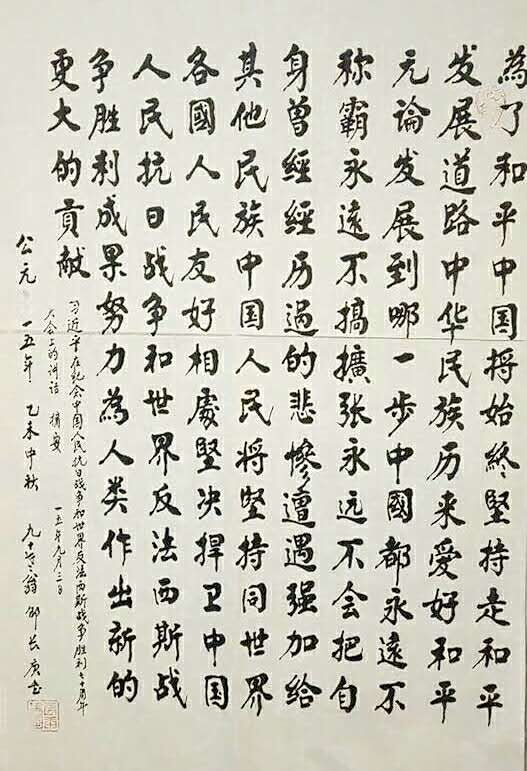 為了和平中国将始终堅持走和平
发展道路中华民族历来爱好和平
无论发展到哪一步中國都永遠不
称霸永遠不搞擴张永远不会把自
身曾經經历過的悲慘遭遇强加给
其他民族中国人民将堅持同世界
各國人民友好相處堅决捍卫中国
人民抗日战争和世界反法西斯战
争胜利成果努力為人类作出新的
更大的貢献
习近平在纪念中国人民抗日战争和世界反法西斯战争胜利七十周年
大会上的讲话 摘要 一五年九月三日
公元 一五年 乙未中秋 九十翁 邵长庚书